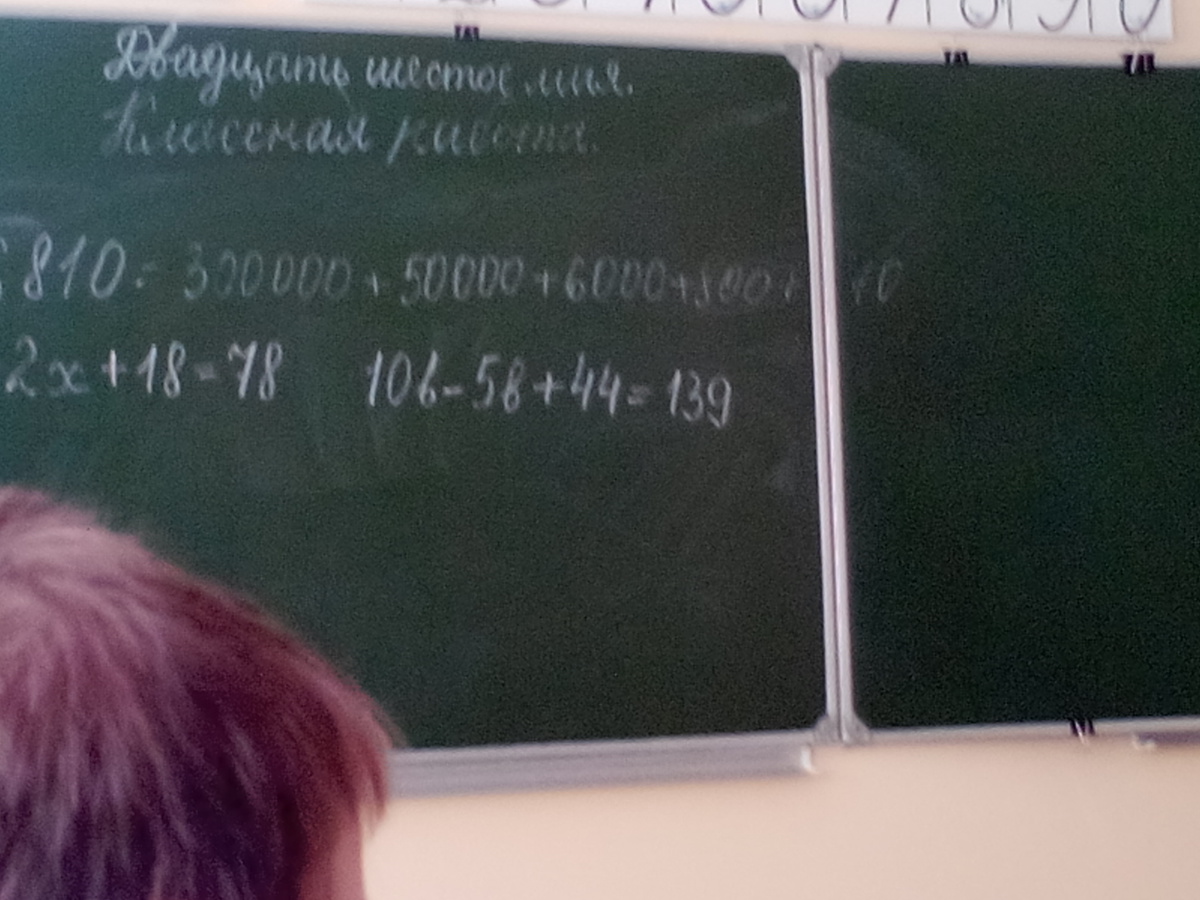 Двадцать шестое мая.
Классная работа.
6810 = 300000 + 50000 + 6000 + 800 + 10
2x + 18 = 78 10b - 5b + 44 = 139